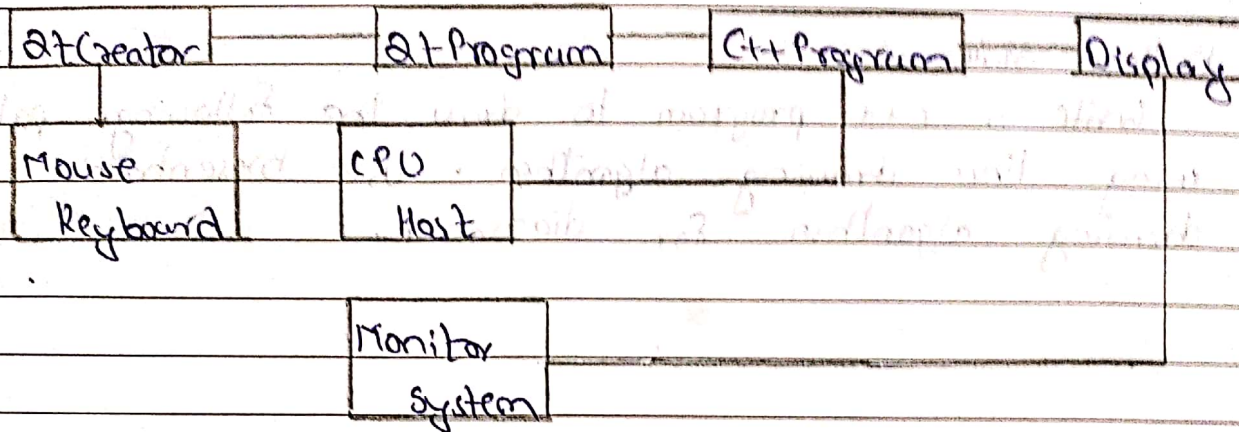 QtCreator
Qt Program
C++ Program
Display
Mouse
Keyboard
CPU
Host
Monitor
System